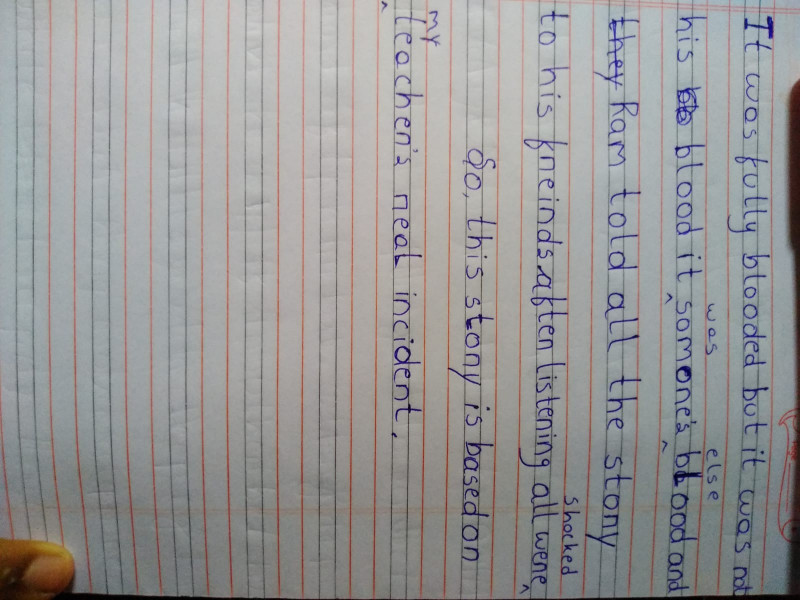 It was fully blooded but it was not
his blood it was somone's else blood and
they Ram told all the story
to his freinds after listening all were shocked
So, this story is based on
my teacher's real incident.